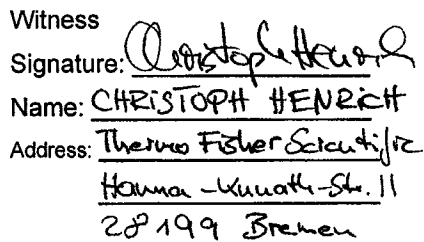 Witness
Signature: Christoph Henrich
Name: CHRISTOPH HENRICH
Address: Thermo Fisher Scientific
Hanna-Kunath-Str. 11
28199 Bremen